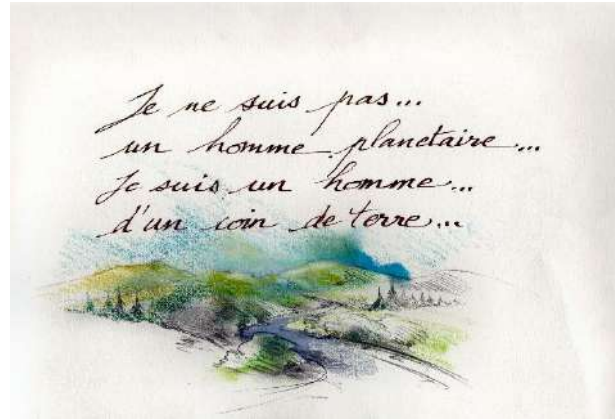 Je ne suis pas...
un homme planetaire...
Je suis un homme...
d'un coin de terre...